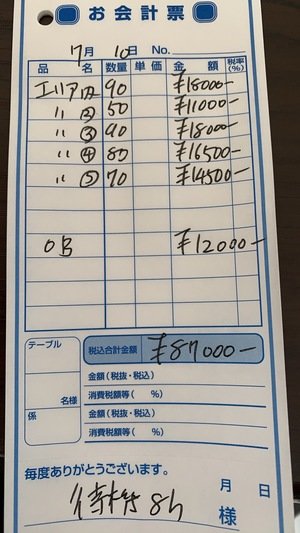 お会計票
7月 10日 No.
品名 数量 単価 金額 税率(%)
エリア内 90 ¥18000-
〃 ② 50 ¥11000-
〃 ③ 90 ¥18000-
〃 ④ 80 ¥16500-
〃 ⑤ 70 ¥14500-
OB ¥12000-
テーブル 税込合計金額 ¥87000-
金額(税抜・税込)
名様 消費税額等( %)
係 金額(税抜・税込)
消費税額等( %)
毎度ありがとうございます。 月 日
待機 8h 様